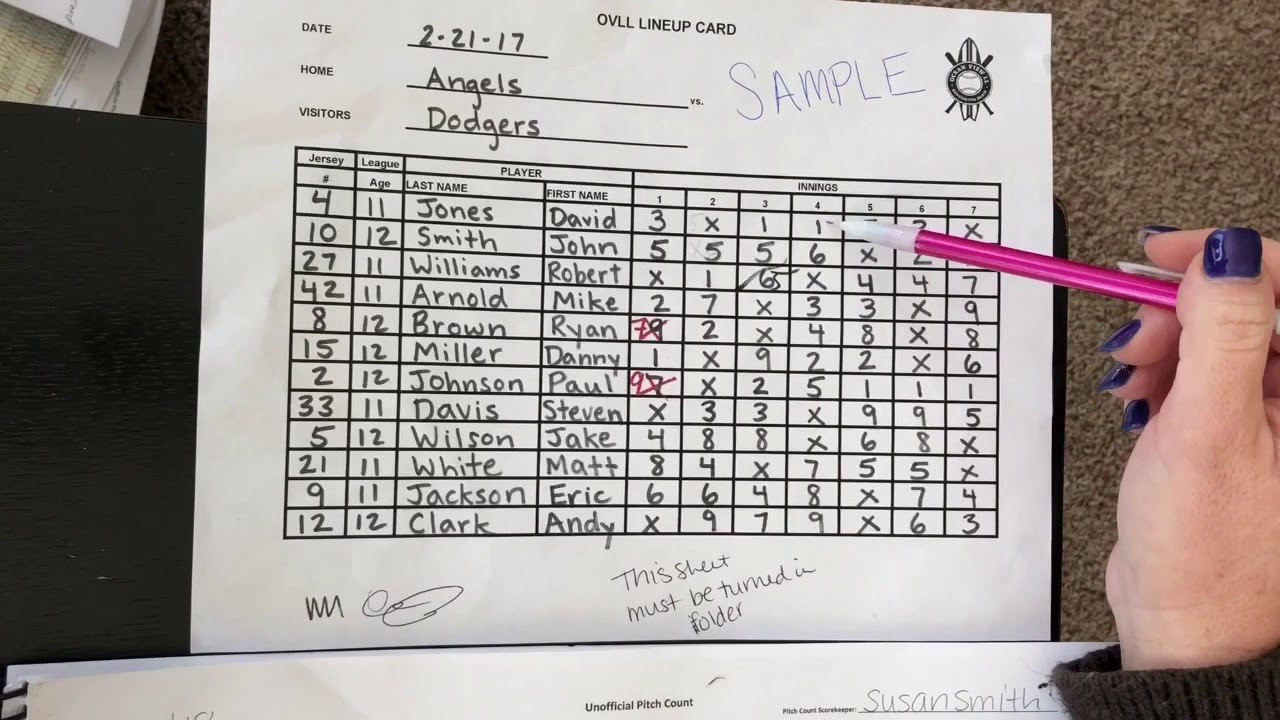 OVLL LINEUP CARD
DATE 2-21-17
HOME Angels vs. SAMPLE
VISITORS Dodgers
OCEAN VIEW LL
Jersey # League Age PLAYER INNINGS
LAST NAME FIRST NAME 1 2 3 4 5 6 7
4 11 Jones David 3 x 1 1 x
10 12 Smith John 5 5 5 6 x 2
27 11 Williams Robert x 1 x 4 4 7
42 11 Arnold Mike 2 7 x 3 3 x 9
8 12 Brown Ryan 7 9 2 x 4 8 x 8
15 12 Miller Danny 1 x 9 2 2 x 6
2 12 Johnson Paul 9 7 x 2 5 1 1 1
33 11 Davis Steven x 3 3 x 9 9 5
5 12 Wilson Jake 4 8 8 x 6 8 x
21 11 White Matt 8 4 x 7 5 5 x
9 11 Jackson Eric 6 6 4 8 x 7 4
12 12 Clark Andy x 9 7 9 x 6 3
This sheet
must be turned in
folder
Unofficial Pitch Count
Pitch Count Scorekeeper: Susan Smith